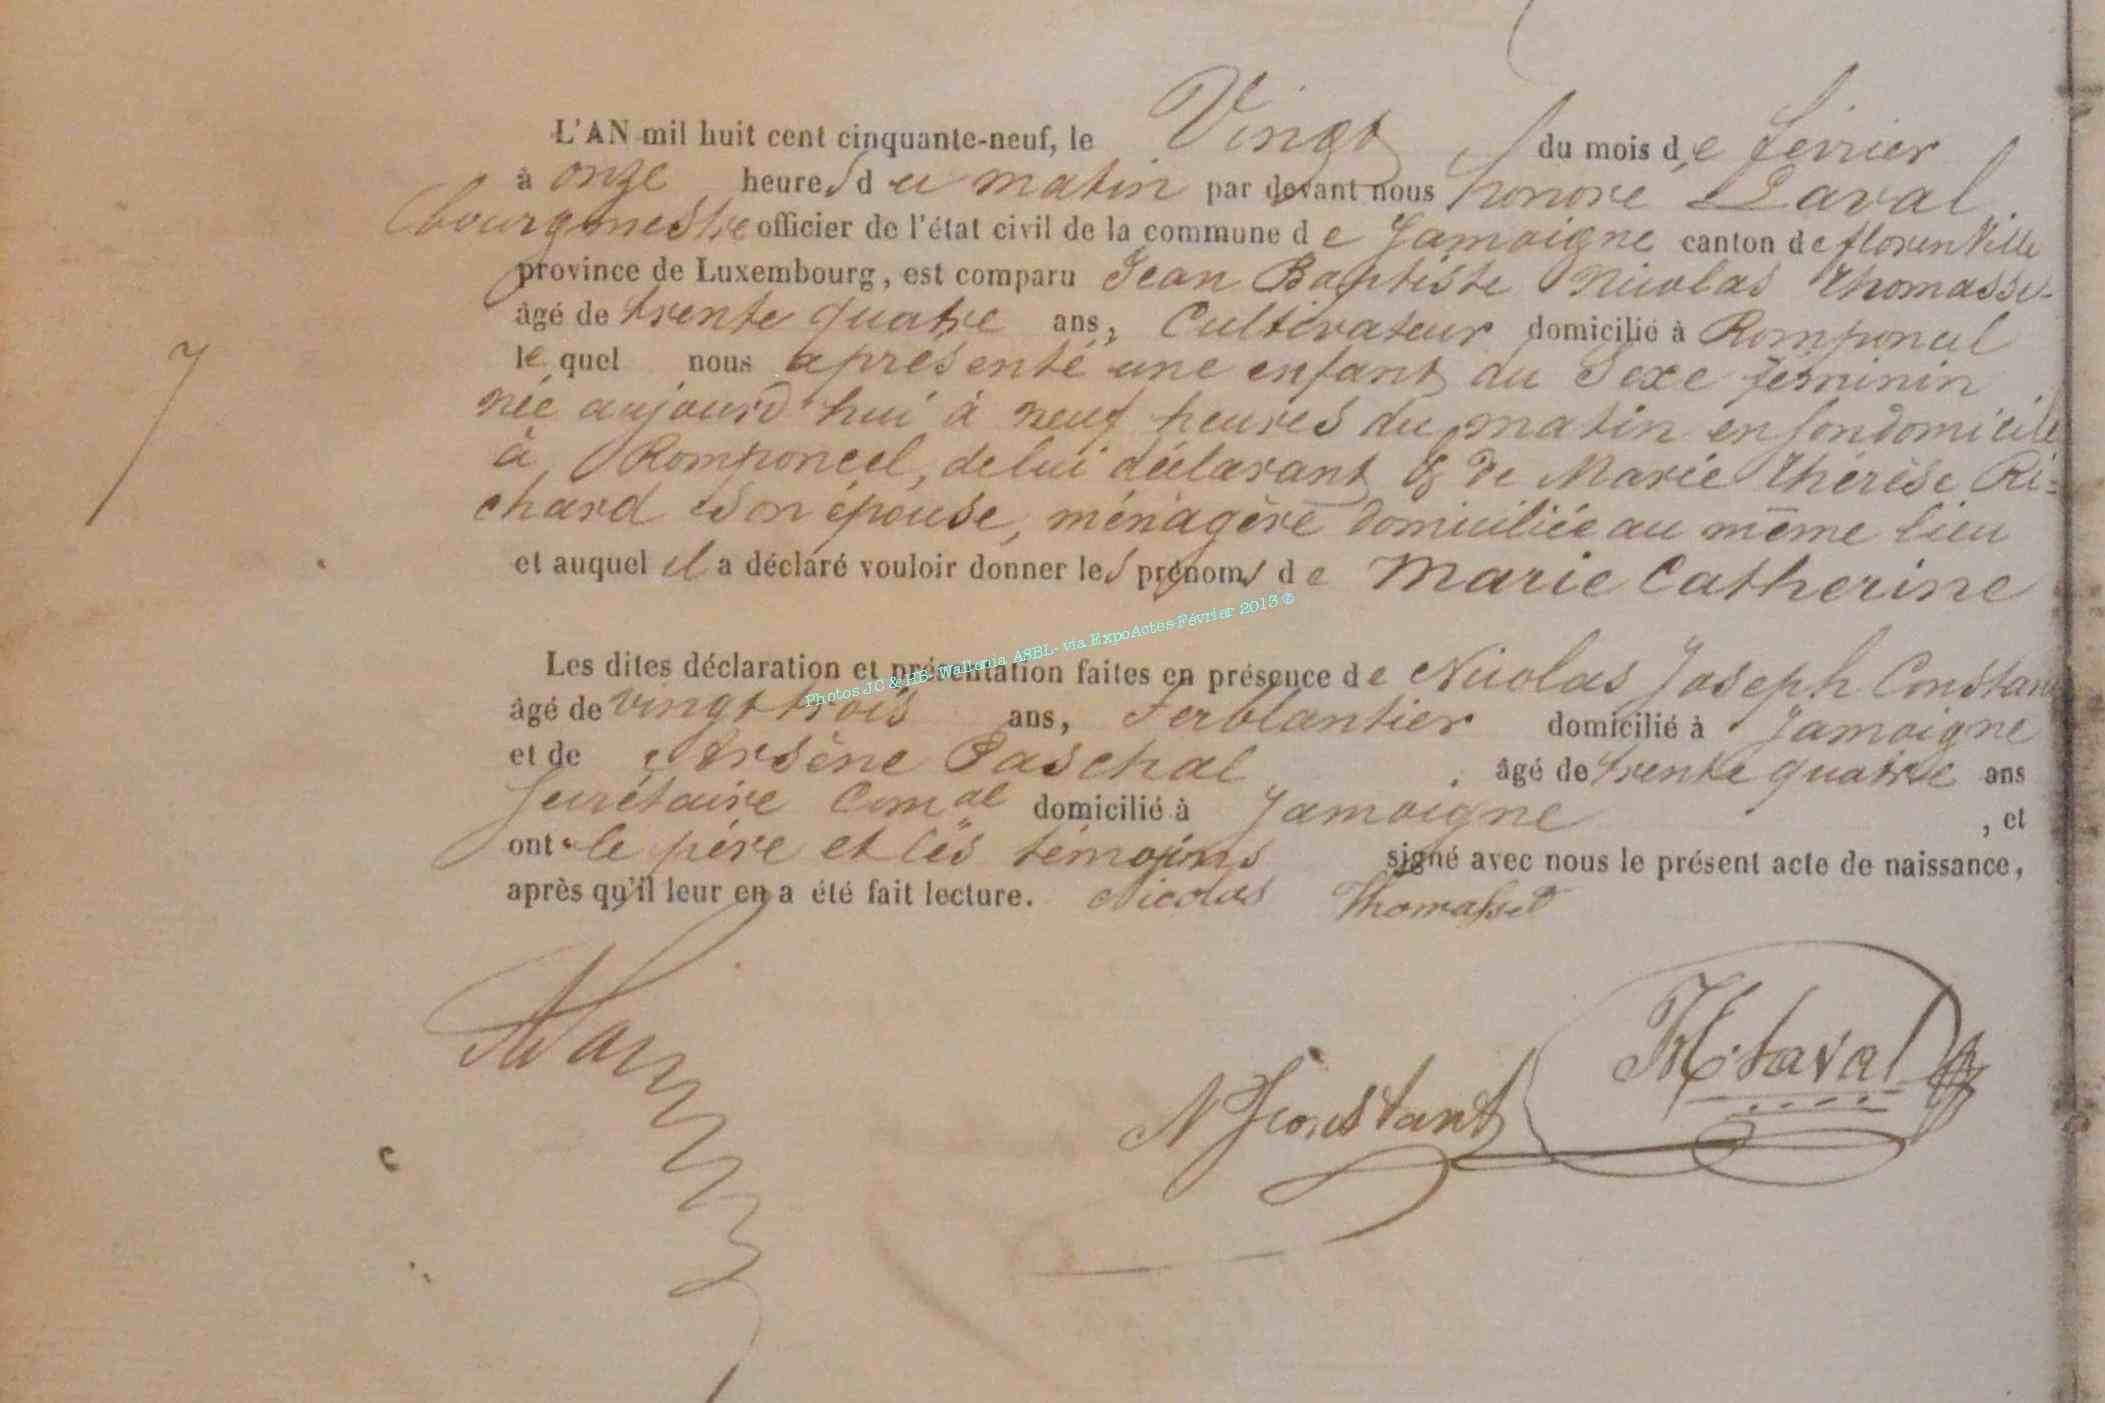 L'AN mil huit cent cinquante-neuf, le Vingt du mois de février
à onze heures du matin par devant nous honoré Laval
bourgmestre officier de l'état civil de la commune de Jamoigne canton de florenville
province de Luxembourg, est comparu Jean Baptiste Nicolas Thomasset
âgé de trente quatre ans, Cultivateur domicilié à Romponcel
7
lequel nous a présenté une enfant du Sexe féminin
née aujourd'hui à neuf heures du matin en son domicile
à Romponcel, de lui déclarant & de Marie Thérèse Ri=
chard son épouse, ménagère domiciliée au même lieu
et auquel il a déclaré vouloir donner les prénoms de Marie Catherine
Photos JC & HB Wallonia ASBL- via ExpoActes Février 2013 ©
Les dites déclaration et présentation faites en présence de Nicolas Joseph Constant
âgé de vingt trois ans, Ferblantier domicilié à Jamoigne
et de Arsène Paschal âgé de trente quatre ans
Secrétaire Comal domicilié à Jamoigne , et
ont le père et les témoins signé avec nous le présent acte de naissance,
après qu'il leur en a été fait lecture. Nicolas Thomasset
H. Laval
NJConstant